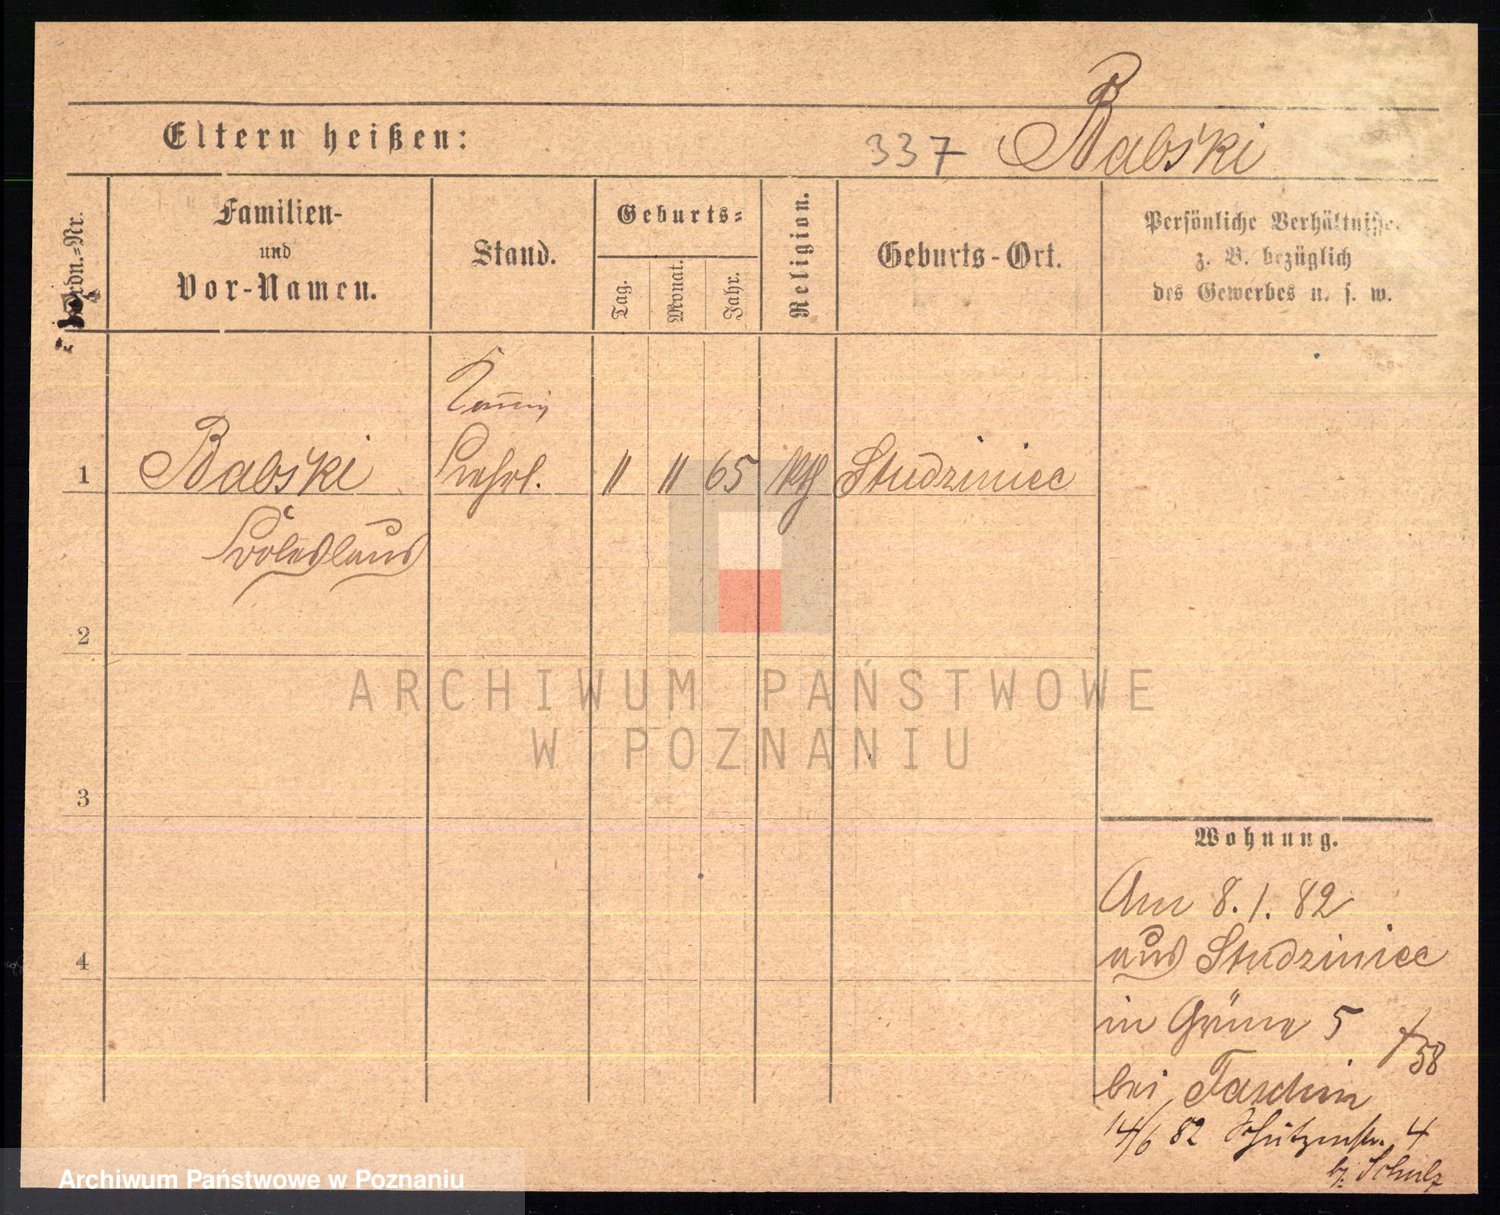 Eltern heißen:
337 Babski
Ordn.-Nr.
Familien-
und
Vor-Namen.
Stand.
Geburts-
Tag.
Monat.
Jahr.
Religion.
Geburts-Ort.
Persönliche Verhältnisse
z. B. bezüglich
des Gewerbes u. s. w.
1 Babski 11 11 65 kth Studziniec
Boleslaus
2
3
4
Wohnung.
Am 8.1.82
aus Studziniec
in Grüne 5
58
bei
14/6 82 Schützenstr. 4
b. Schulz
ARCHIWUM PAŃSTWOWE
W POZNANIU
Archiwum Państwowe w Poznaniu